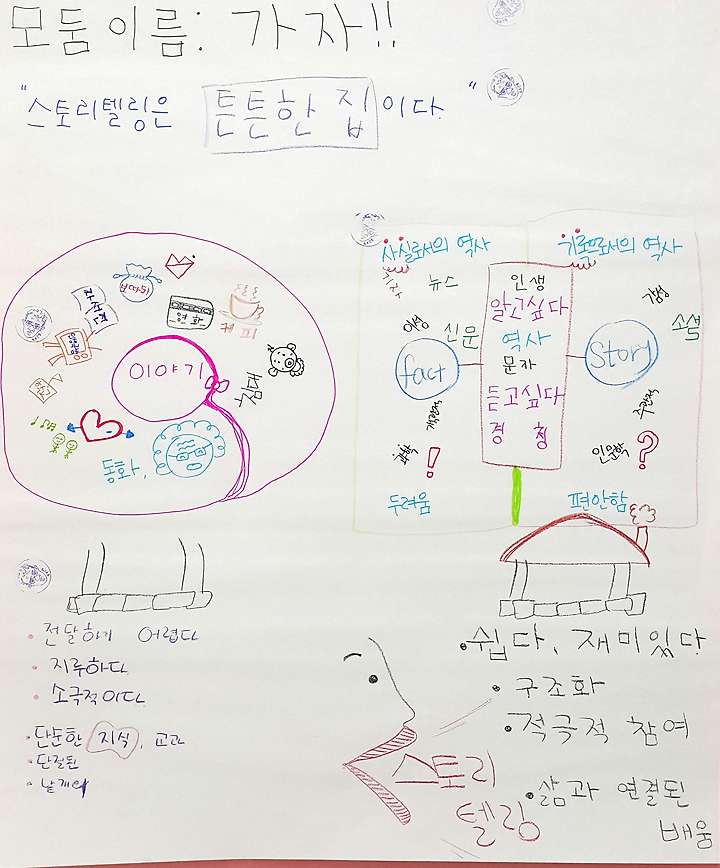 모둠이름: 가자!!
"스토리텔링은 튼튼한 집이다. "
영화
커피
침대
이야기
동화,
사실로서의 역사
기록으로서의 역사
기자
뉴스
이성
신문
fact
객관적
과학
!
두려움
인생
알고싶다
역사
문자
듣고싶다
경청
감성
소설
Story
주관적
인문학
?
편안함
• 전달하기 어렵다
• 지루하다
• 소극적이다
• 단순한 지식, 교과
• 단절된
• 낱개의
• 쉽다, 재미있다
• 구조화
• 적극적 참여
• 삶과 연결된
배움
스토리
텔링